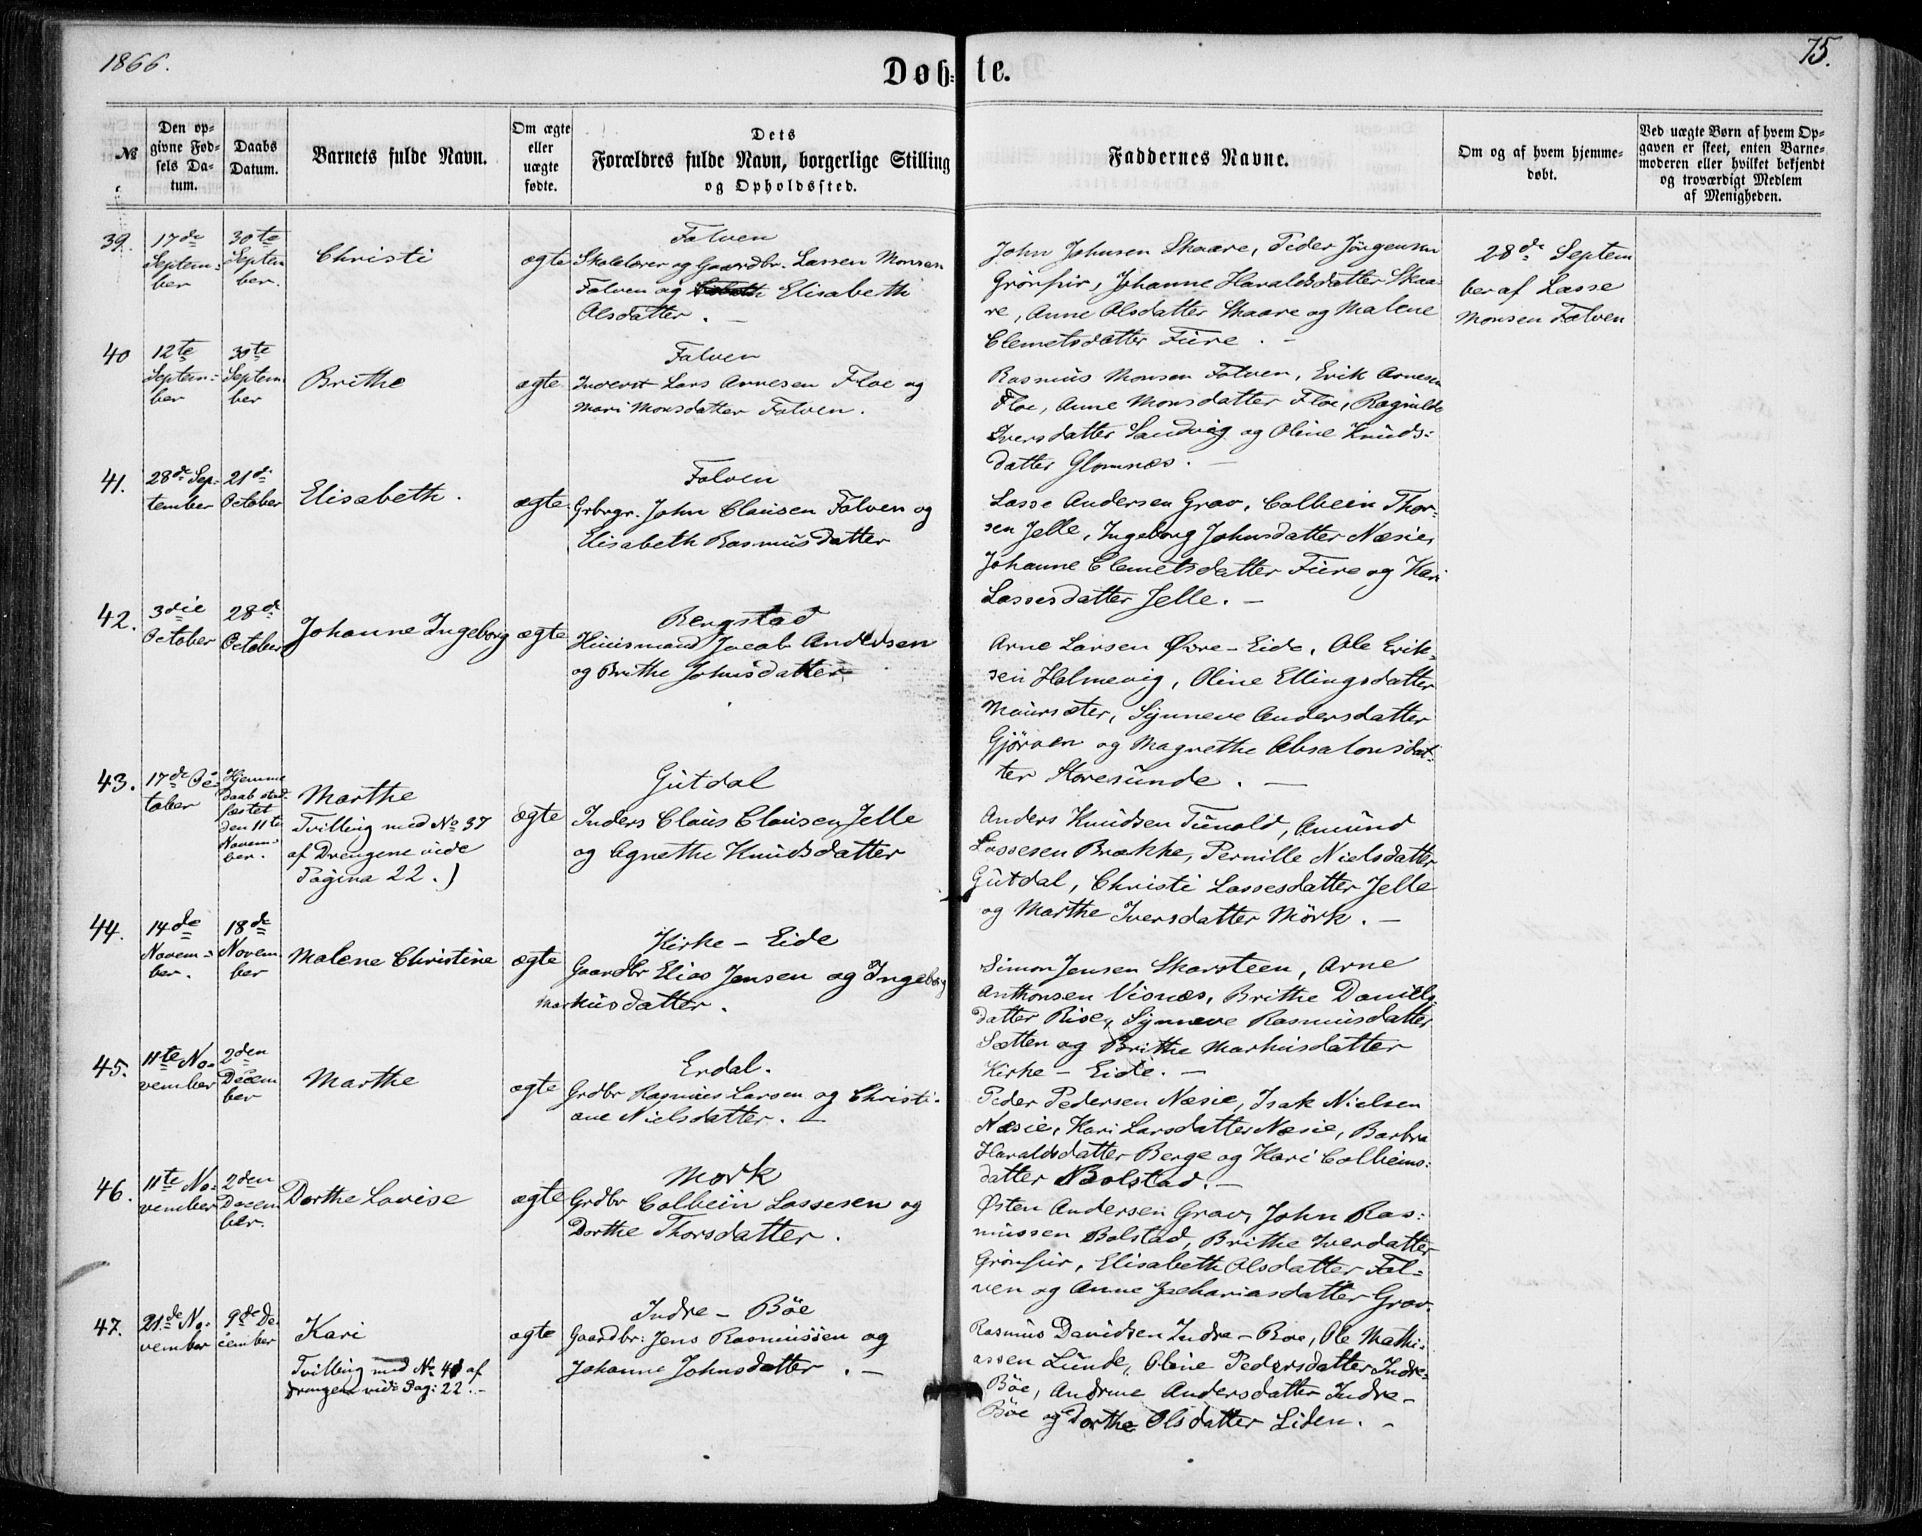 1866.
75.
Døb=te.
№
Den op=
givne Fød=
sels Da=
tum.
Daabs
Datum.
Barnets fulde Navn.
Om ægte
eller
uægte
fødte.
Dets
Forældres fulde Navn, borgerlige Stilling
og Opholdssted.
Faddernes Navne.
Om og af hvem hjemme=
døbt.
Ved uægte Børn af hvem Op=
gaven er skeet, enten Barne=
moderen eller hvilket bekjendt
og troværdigt Medlem
af Menigheden.
39.
17de
Septem=
ber
30te
Septem
ber.
Christi
ægte
Folven
Skolelærer og Gaardbr. Lassen Monsen
Folven og Elisabeth
Olsdatter. —
John Johnsen Skaare, Peder Jørgensen
Grönfur, Johanne Haraldsdatter Skaa=
re, Anne Olsdatter Skaare og Malene
Clemetsdatter Fure. —
28de Septem
ber af Lasse
Monsen Folven
40
12te
Septem=
ber
30te
Septem
ber
Brithe
ægte
Folven
Inderst Lars Arnesen Floe og
Mari Monsdatter Folven.
Rasmus Monsen Folven, Erik Arnesen
Floe, Anne Monsdatter Floe, Ragnilde
Iversdatter Sandvig og Oline Knuds=
datter Glomnæs. —
41.
28de Sep=
tember
21de
October
Elisabeth.
ægte
Folven
Grbrgr. John Clausen Folven og
Elisabeth Rasmusdatter
Lasse Andersen Grav, Colbein Thor=
sen Jelle, Ingeborg Johnsdatter Næsie,
Johanne Clemetsdatter Fure og Kari
Lassesdatter Jelle. —
42.
3die
October
28de
October
Johanne Ingeborg
ægte
Bergstad
Huusmand Jacob Andersen
og Brithe Johnsdatter
Arne Larsen Øvre-Eide, Ole Erik=
sen Holmevig, Oline Ellingsdatter
Maursæter, Synneve Andersdatter
Gjørven og Magnethe Absalonsdat=
ter Storesunde. —
43.
17de Oc=
tober
Hjemme
daab stad
fæstet
den 11te
Novem=
ber.
Marthe
Tvilling med No 37
af Drengene vide
Pagina 22.)
ægte
Gutdal
Inders Claus Clausen Jelle
og Agnethe Knudsdatter
Anders Knudsen Tunold, Amund
Lassesen Brække, Pernille Nielsdatter
Gutdal, Christi Lassesdatter Jelle
og Marthe Iversdatter Mörk. —
44.
14de
Novem=
ber.
18de
Novem
ber
Malene Christine
ægte
Kirke-Eide
Gaardbr Elias Jensen og Ingeborg
Markusdatter.
Simon Jensen Skarsteen, Arne
Anthonsen Visnæs, Brithe Daniels
datter Rise, Synneve Rasmusdatter
Sætten og Brithe Markusdatter
Kirke-Eide. —
45.
11te No=
vember
2den
Decem
ber
Marthe
ægte
Erdal.
Grdbr Rasmus Larsen og Christi=
ane Nielsdatter. —
Peder Pedersen Næsie, Isak Nielsen
Næsie, Kari Larsdatter Næsie, Barbra
Haraldsdatter Berge og Kari Colbeins=
datter Bolstad. —
46.
11te No=
vember
2den
Decem
ber.
Dorthe Lovise
ægte
Mork
Grdbr Colbein Lassesen og
Dorthe Thorsdatter.
Østen Andersen Grav, John Ras=
mussen Bolstad, Brithe Iverdatter
Grönfur, Elisabeth Olsdatter Fol=
ven og Anne Zachariasdatter Grov.
47.
21de No=
vember
9de De=
cember
Kari
Tvilling med No 41 af
drengene vide Pag: 22. —
ægte
Indre-Böe
Gaardbr: Jens Rasmussen og
Johanne Johnsdatter. —
Rasmus Davidsen Indre-Boe, Ole Mathi=
assen Lunde, Oline Pedersdatter Indre=
Böe, Andrine Andersdatter Indre-
Böe og Dorthe Olsdatter Liden. —